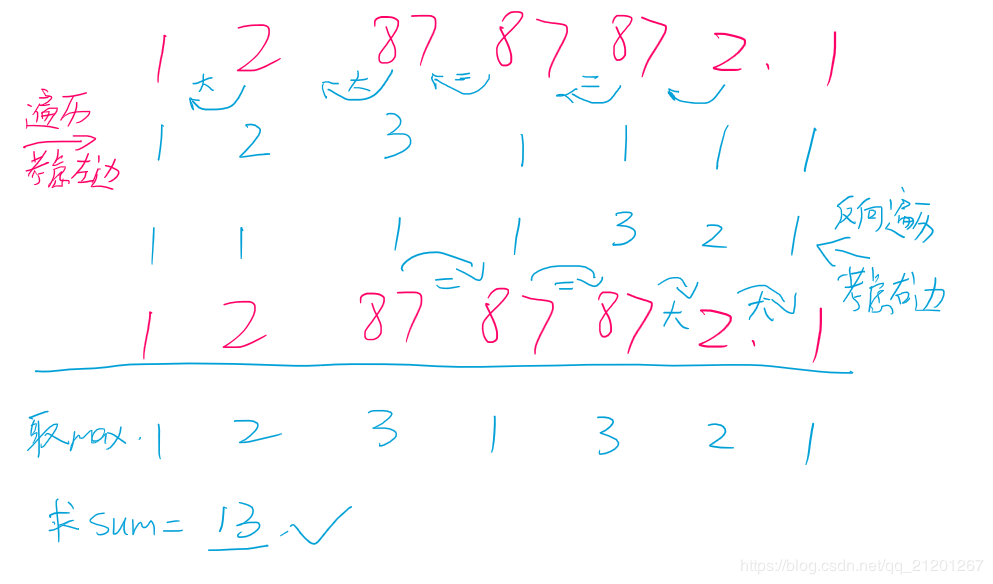 1 2 87 87 87 2. 1
大 大 = =
遍历
考虑左边
1 2 3 1 1 1 1
反向遍历
1 1 1 1 3 2 1
考虑右边
= = 大 大
1 2 87 87 87 2. 1
取max. 1 2 3 1 3 2 1
求sum = 13
https://blog.csdn.net/qq_21201267